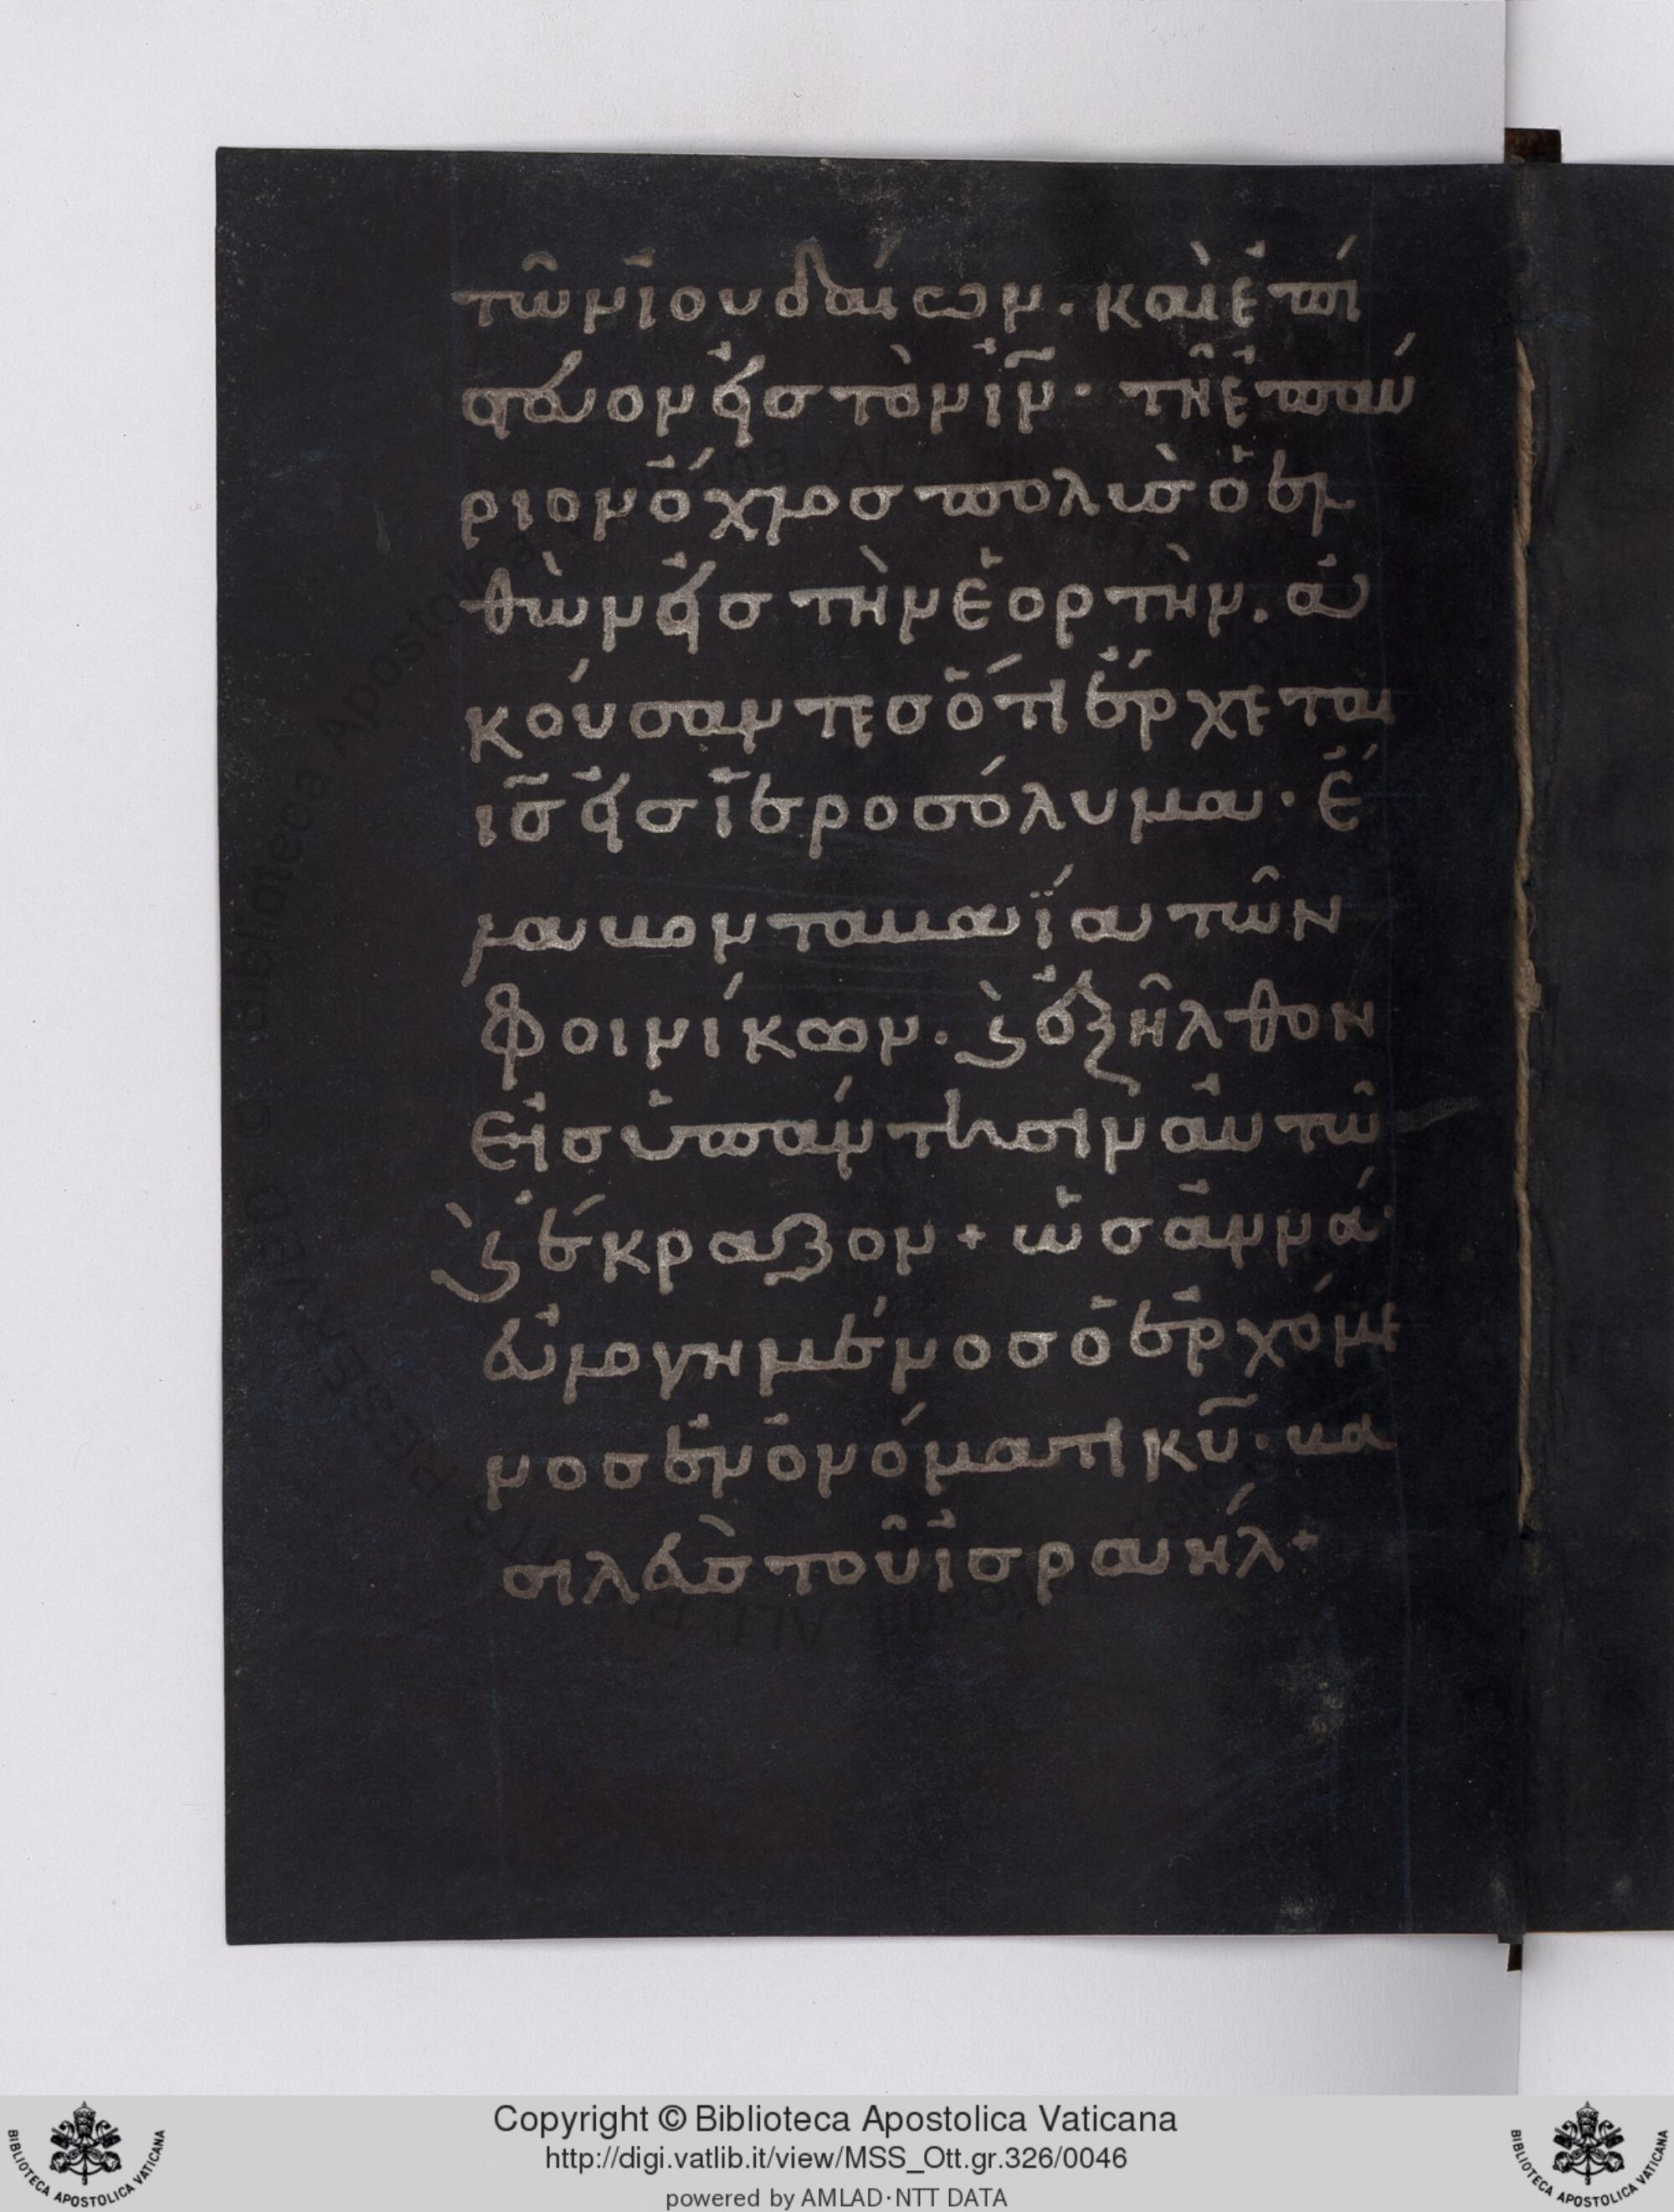 τῶν ἰουδαίων. καὶ ἐπί
στευον εἰς τὸν ἰν̅· τῆ ἐπαύ
ριον ὁ ὄχλος πολὺς ὁ ἐλ
θὼν εἰς τὴν ἑορτὴν. ἀ
κούσαντες ὅτι ἔρχεται
ις̅ εἰς ἱεροσόλυμα· ἔ
λαβον τὰ βαΐα τῶν
φοινίκων. ϗ ἐξῆλθον
εἰς ὑπάντησιν αὐτῶ
ϗ ἔκραζον + ὡσαννά·
εὐλογημένος ὁ ἐρχόμε
νος ἐν ὀνόματι κυ̅· βα
σιλεὺς τοῦ ἰσραήλ +
Copyright © Biblioteca Apostolica Vaticana
http://digi.vatlib.it/view/MSS_Ott.gr.326/0046
powered by AMLAD·NTT DATA
BIBLIOTECA APOSTOLICA VATICANA
BIBLIOTECA APOSTOLICA VATICANA